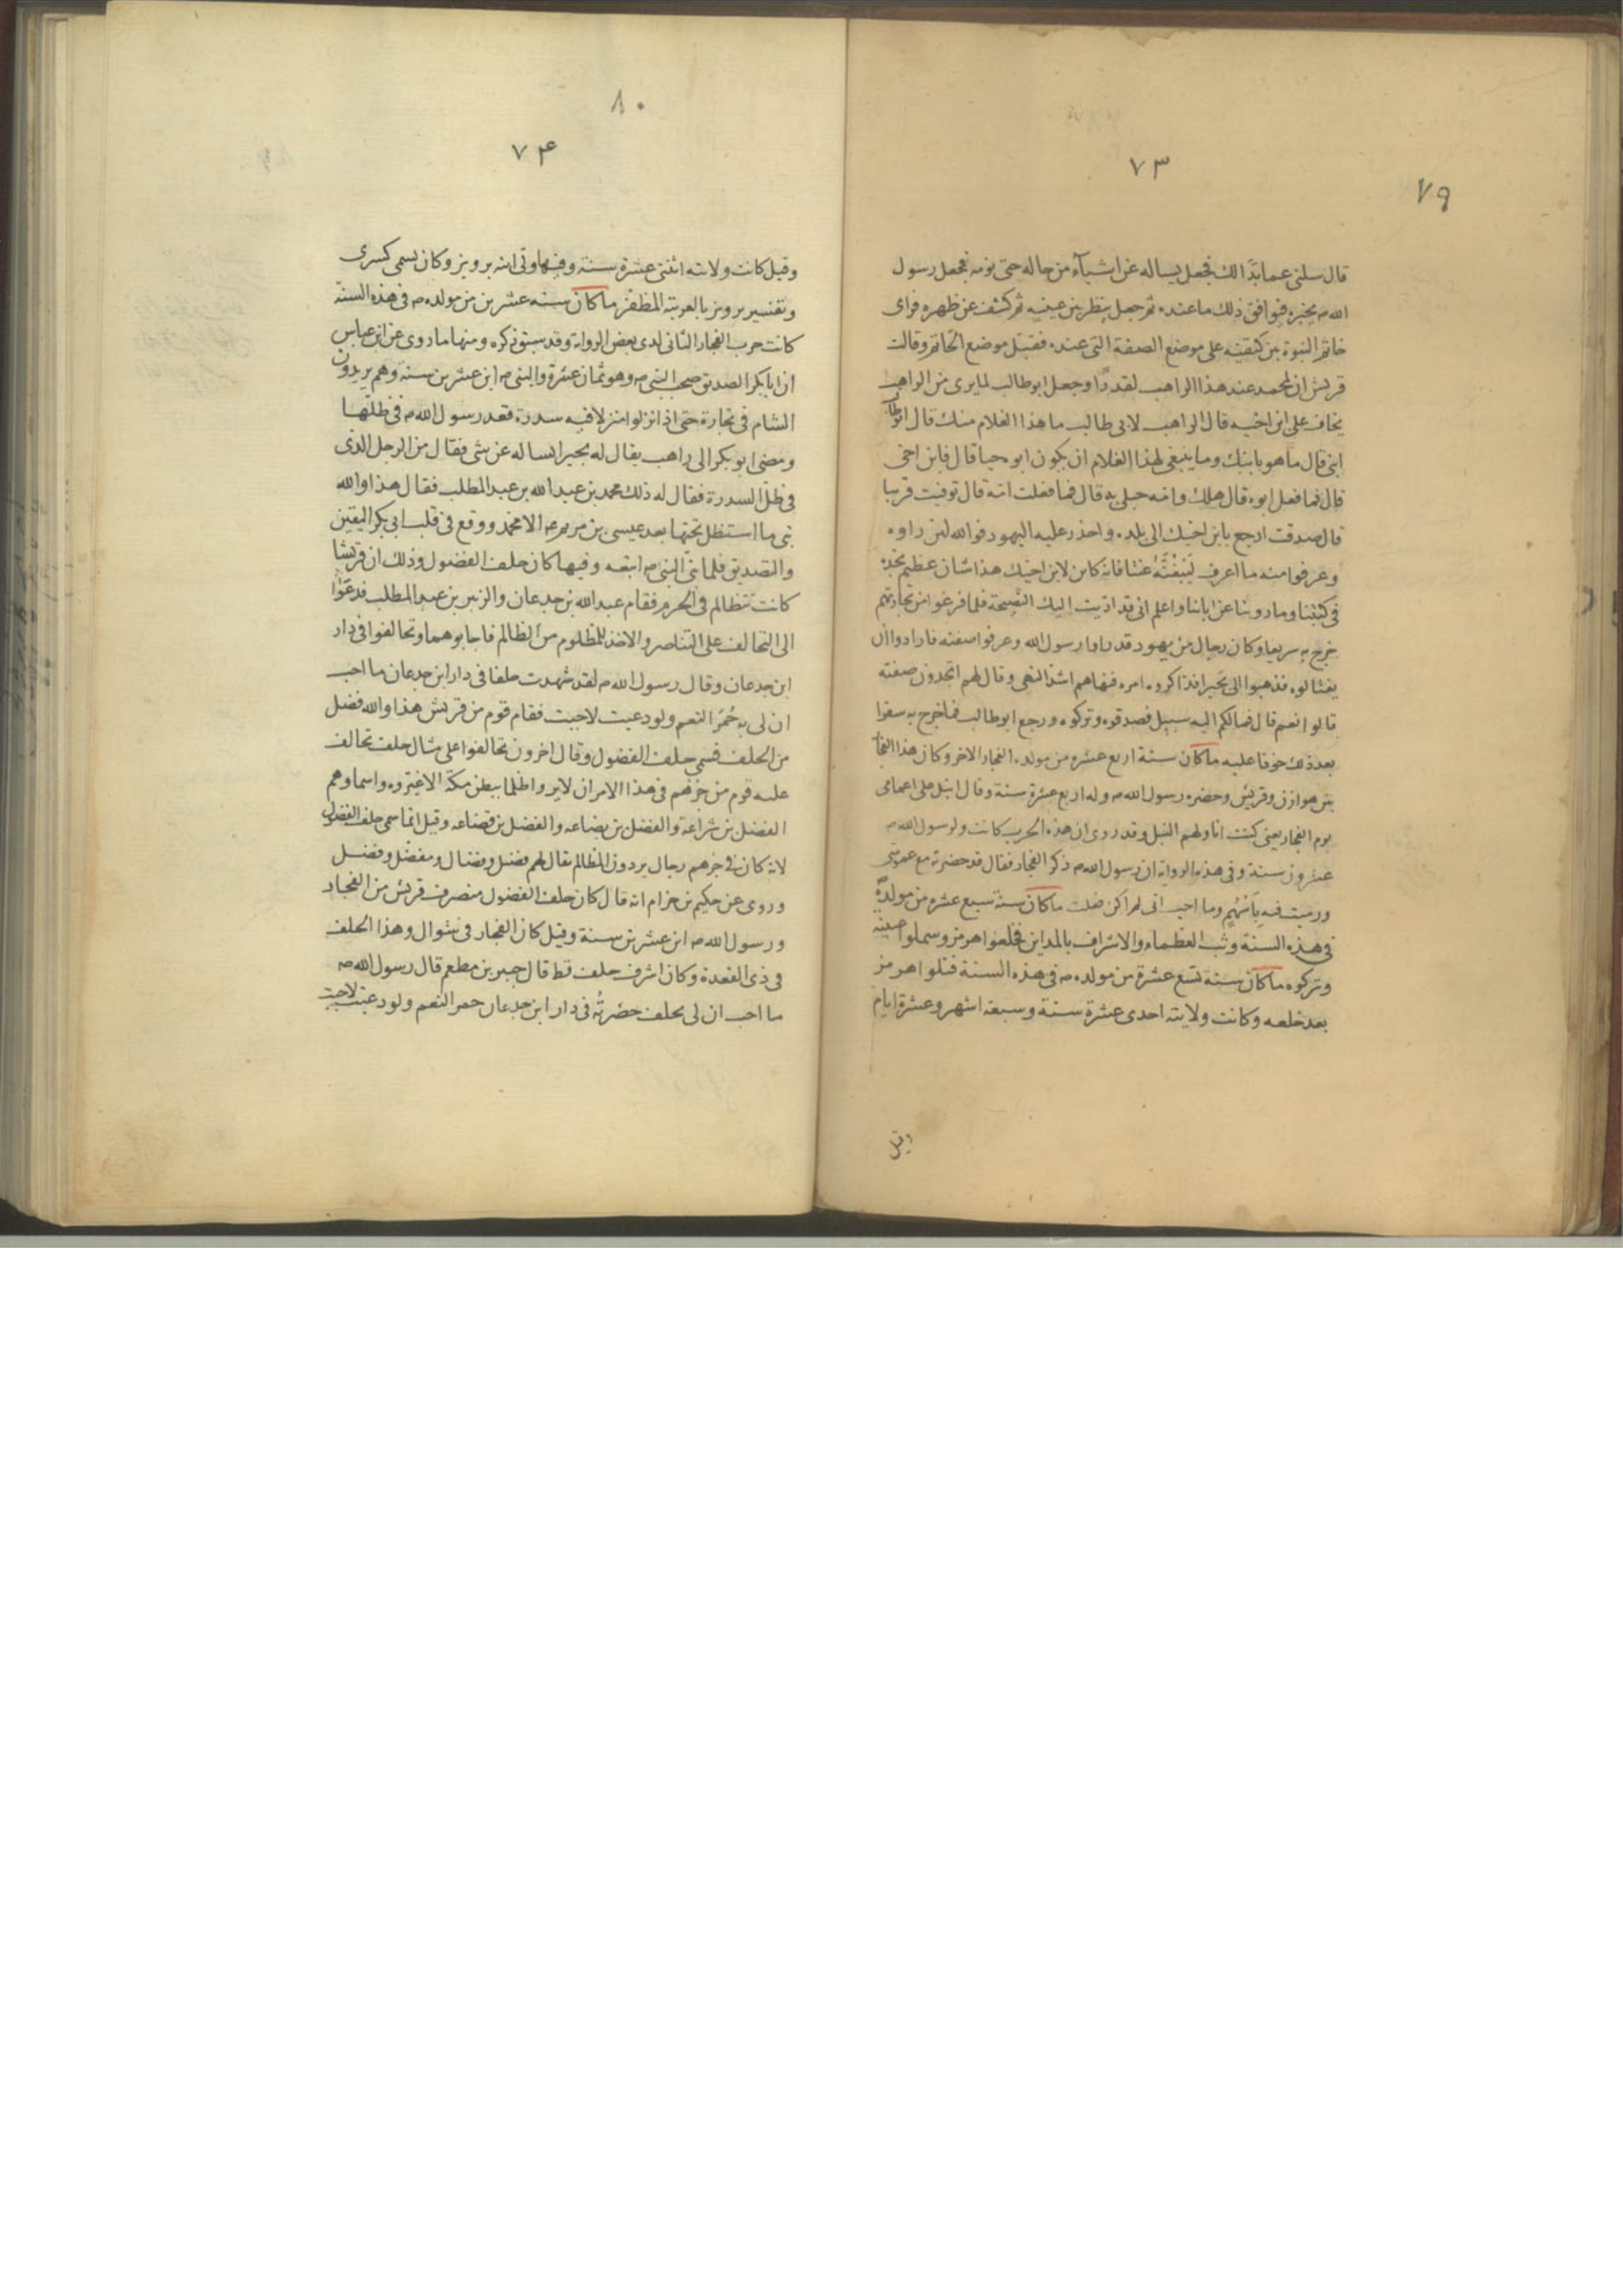 ٧٩
٧٣
قال سلنى عما بدا لك فجعل يساله عن اشيآء من حاله حتى نومه فجعل رسول
الله ص يخبره فيوافق ذلك ما عنده ثم جعل ينظر بين عينيه ثم كشف عن ظهره فراى
خاتم النبوة بين كتفيه على موضع الصفة التى عنده فقبّل موضع الخاتم وقالت
قريش ان لمحمد عند هذا الراهب لقدرًا وجعل ابو طالب لما يرى من الراهب
يخاف على ابن اخيه قال الراهب لابى طالب ما هذا الغلام منك قال ابوطالب
ابنى قال ما هو بابنك وما ينبغى لهذا الغلام ان يكون ابوه حيا قال فابن اخى
قال فما فعل ابوه قال هلك وامه حبلى به قال فما فعلت امه قال توفيت قريبا
قال صدقت ارجع بابن اخيك الى بلده واحذر عليه اليهود فوالله لئن راوه
وعرفوا منه ما اعرف لَيَبْغُنَّهُ عنتا فانه كائن لابن اخيك هذا شان عظيم نجده
فى كتبنا وما روينا عن ابائنا واعلم انى قد اديت اليك النصيحة فلما فرغوا من تجارتهم
خرج به سريعا وكان رجال من يهود قد راوا رسول الله وعرفوا صفته فارادوا ان
يغتالوه فذهبوا الى بَحيرا فذاكروه امره فنهاهم اشد النهى وقال لهم اتجدون صفته
قالوا نعم قال فما لكم اليه سبيل فصدقوه وتركوه ورجع ابو طالب فما خرج به سفرا
بعد ذلك خوفا عليه ما كان سنة اربع عشره من مولده الفجار الاخر وكان هذا الفجار
بين هوازن وقريش وحضره رسول الله ص وله اربع عشرة سنة وقال انبل على اعمامى
يوم الفجار يعنى كنت اناولهم النبل وقد روى ان هذه الحرب كانت ولرسول الله ص
عشرون سنة وفى هذه الرواية ان رسول الله ص ذكر الفجار فقال قد حضرته مع عمومتى
ورميت فيه بِاَسْهُمٍ وما احب انى لم اكن فعلت ما كان سنة سبع عشره من مولده ص
فى هذه السنة وثب العظماء والاشراف بالمداين فخلعوا هرمز وسملوا عينيه
وتركوه ما كان سنة تسع عشرة من مولده ص فى هذه السنة قتلوا هرمز
بعد خلعه وكانت ولايته احدى عشرة سنة وسبعة اشهر وعشرة ايام
وقيل
٨٠
٧۴
وقيل كانت ولايته اثنتى عشرة سنة وفيها ولى ابنه برويز وكان يسمى كسرى
وتفسير برويز بالعربية المظفر ما كان سنه عشرين من مولده ص فى هذه السنة
كانت حرب الفجار الثانى لدى بعض الرواة وقد سبق ذكره ومنها ما روى عن ابن عباس
ان ابا بكر الصديق صحب النبى ص وهو ثمان عشرة والنبى ص ابن عشرين سنة وهم يريدون
الشام فى تجارة حتى اذا نزلوا منزلا فيه سدرة فقعد رسول الله ص فى ظلّها
ومضى ابو بكر الى راهب يقال له بحيرا يساله عن شى فقال من الرجل الذى
فى ظلّ السدرة فقال له ذلك محمد بن عبد الله بن عبد المطلب فقال هذا والله
نبى ما استظل تحتها بعد عيسى بن مريم عم الا محمد ووقع فى قلب ابى بكر اليقين
والتصديق فلما نبّى النبى ص اتبعه وفيها كان حلف الفضول وذلك ان قريشا
كانت تتظالم فى الحرم فقام عبد الله بن جدعان والزبير بن عبد المطلب فدعَوْا
الى التحالف على التناصر والاخذ للمظلوم من الظالم فاجابوهما وتحالفوا فى دار
ابن جدعان وقال رسول الله ص لقد شهدت حلفا فى دار ابن جدعان ما احب
ان لى به حُمْرَ النعم ولو دعيت لاجبت فقام قوم من قريش هذا والله فضل
من الحلف فسمى حلف الفضول وقال اخرون تحالفوا على مثال حلف تحالف
عليه قوم من جرهم فى هذا الامر ان لا يروا ظلما ببطن مكة الا غيّروه واسماوهم
الفضل بن شراعة والفضل بن بضاعه والفضل بن قضاعه وقيل انما سمى حلف الفضول
لانه كان فى جرهم رجال يردون المظالم يقال لهم فضيل وفضال ومفضل وفضل
وروى عن حكيم بن حزام انه قال كان حلف الفضول منصرف قريش من الفجار
ورسول الله ص ابن عشرين سنة وقيل كان الفجار فى شوال وهذا الحلف
فى ذى القعدة وكان اشرف حلف قط قال جبير بن مطعم قال رسول الله ص
ما احب ان لى بحلف حضرتُه فى دار ابن جدعان حمر النعم ولو دعيت لاجبت